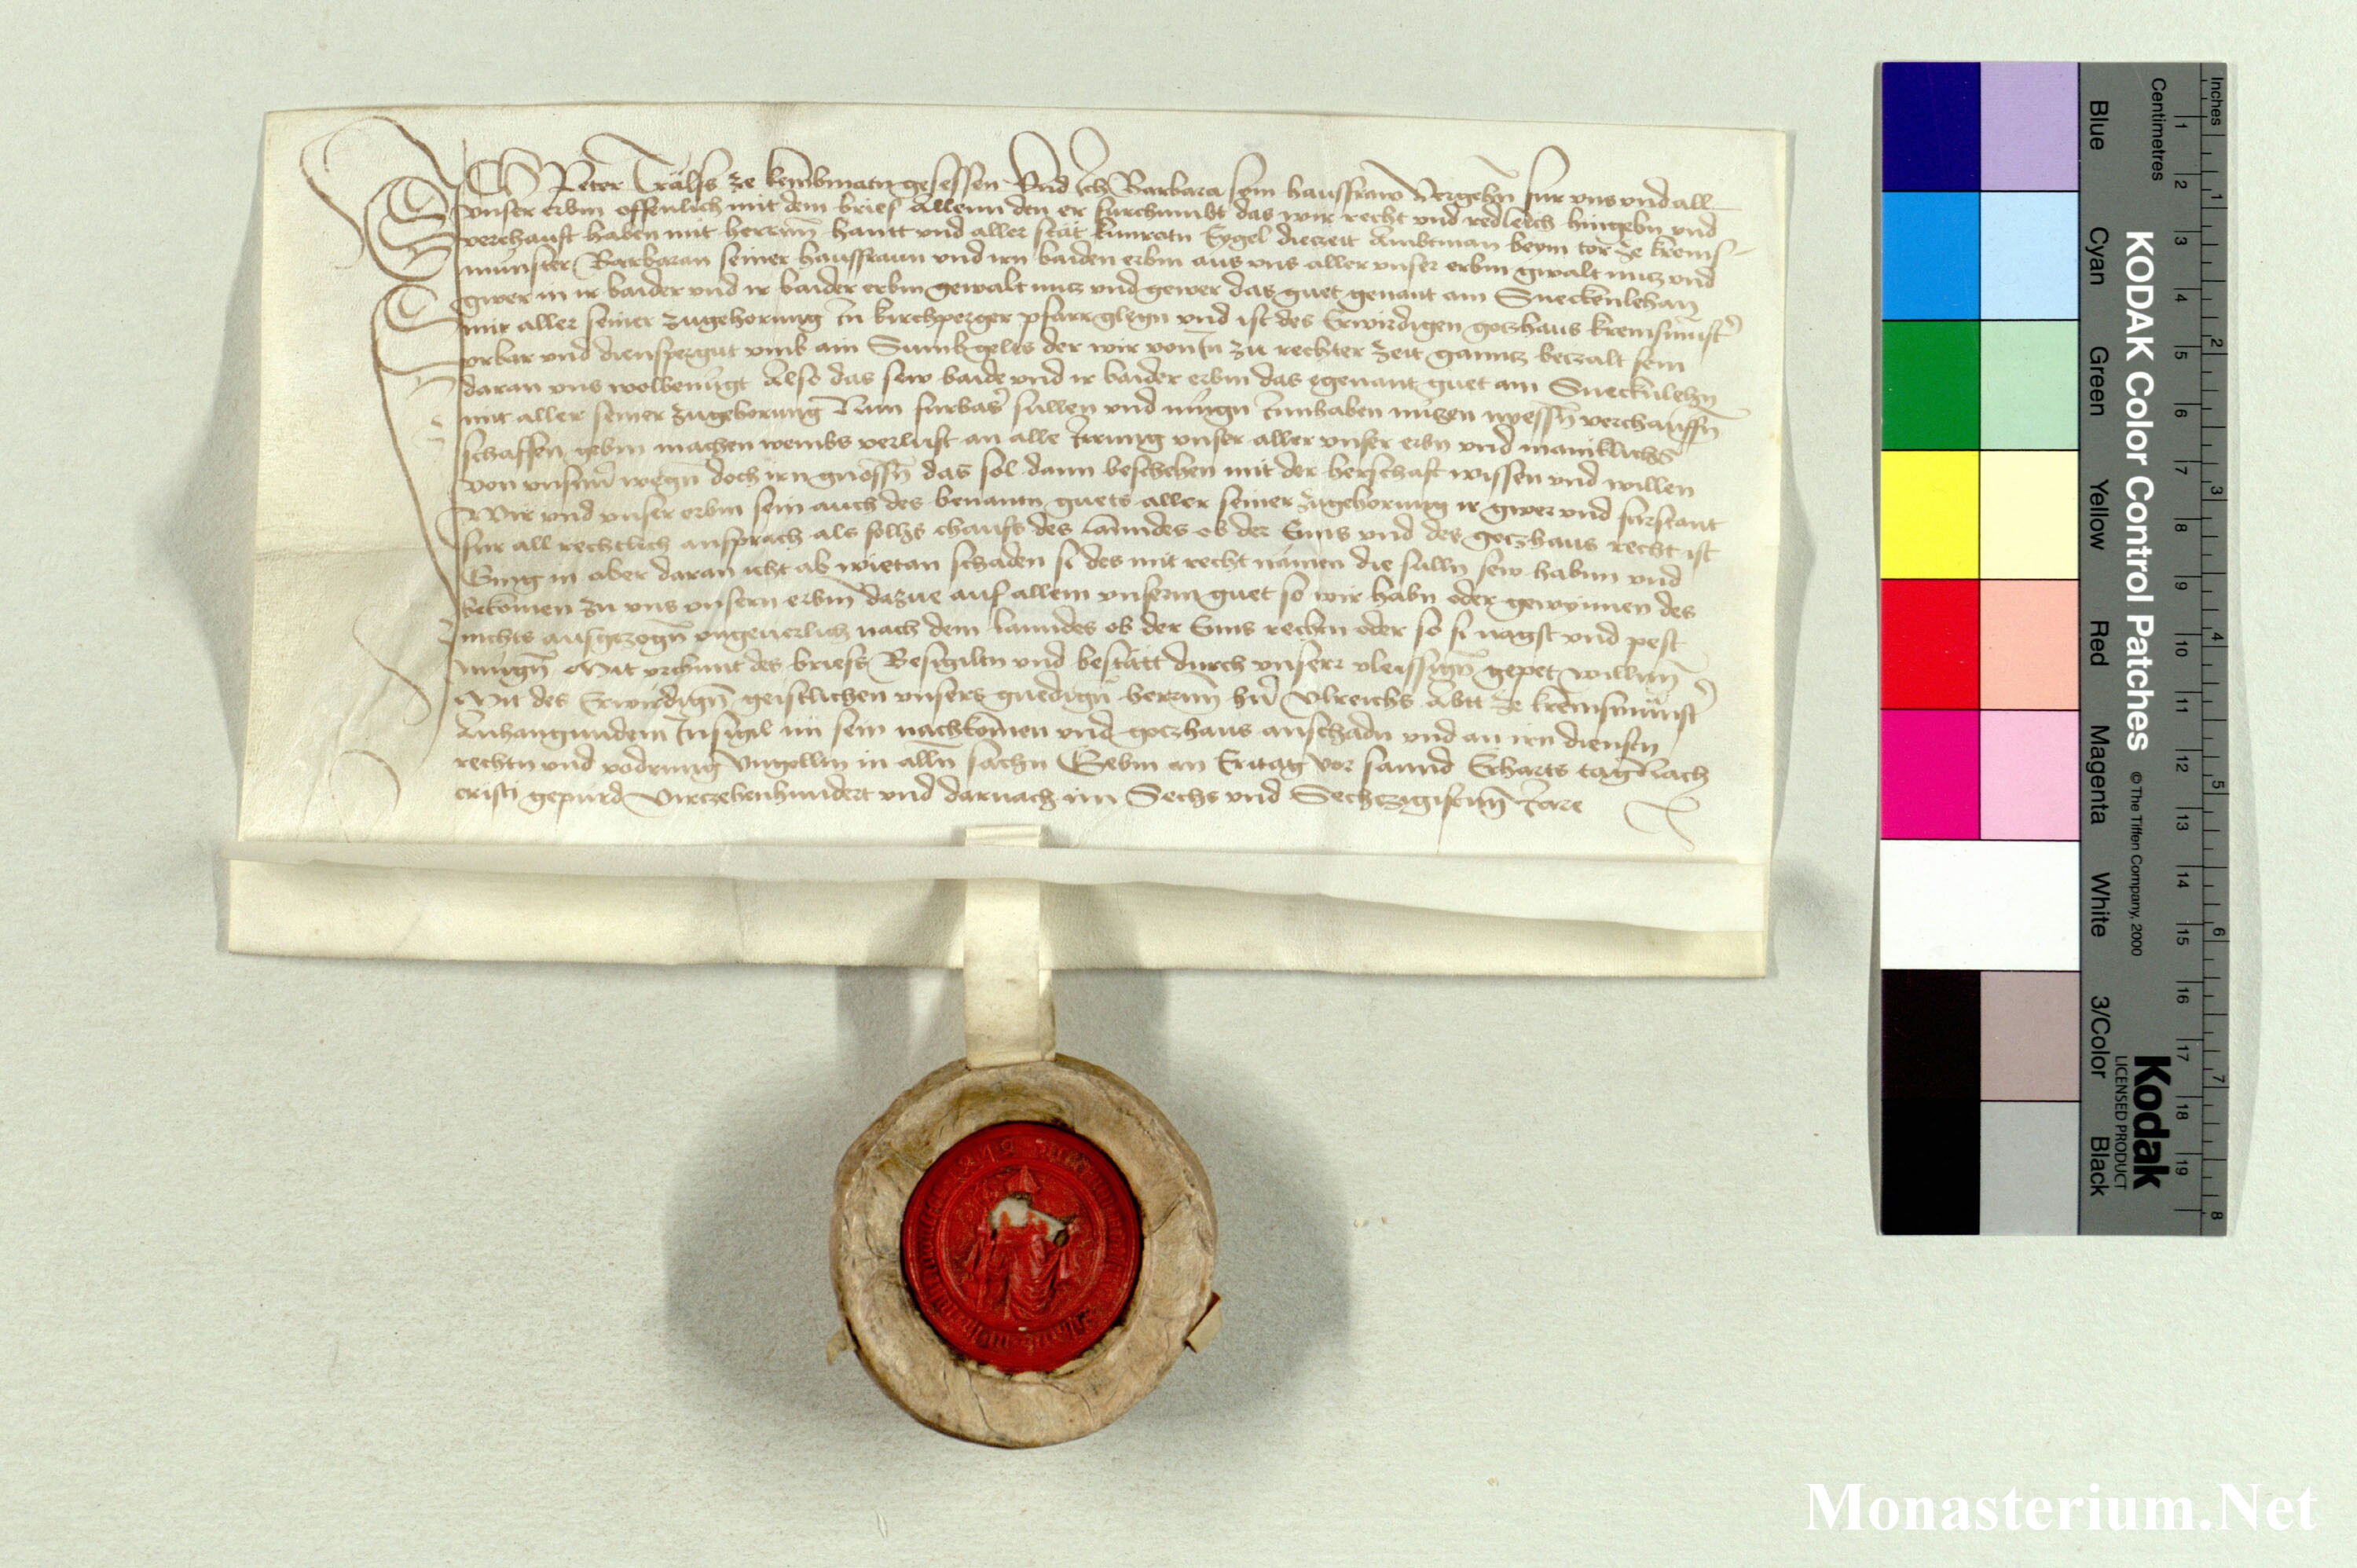 Ich Peter Trälss ze kembmatn gesessen Und Ich Barbara sein haussfraw Vergehn für uns und all
unser erbm offenlich mit dem brief Allenn den er fürchumbt das wir recht und redleich hingebn und
verchauft haben mit herrnn hantt und aller stät kunratn Eygel dieczeit Ambtman beym tor ze krems-
münster Barbaran seiner haussfraun und irn baiden erbm aus uns aller unser erbm gwalt nucz und
gwer in ir baider und ir baider erbm gewalt nucz und gewer das guet genant am Sneckenlehan
mit aller seiner zugehorung In kirchperger pfarr glegn und ist des Erwirdigen goczhaus kremsmunster
urbar und dienspergut umb ain Sumb gelts der wir von In zu rechter zeit ganntz beczalt sein
daran uns wolbenügt Also das sew baide und ir baider erbm das egenant guet am Snecknlehn
mit aller seiner zugehorung Nun furbas sullen und mügn Innhaben nüczen nyessn verchauffn
schaffen gebm machen wembs verlust an alle Irrung unser aller unser erbn und maniklichs
von unsern wegn doch irn gnossn das sol dann beschehen mit der herschaft wissen und willen
Wir und unser erbm sein auch des benantn guets aller seiner zugehorung ir gwer und fürstant
für all rechtlich ansprach als solhs chaufs des lanndes ob der Enns und des goczhaus recht ist
Gieng in aber daran icht ab wietan schaden si des mit recht nämen die sulln sew habnn und
bekomen zu uns unsern erbm dazue auf allem unserm guet so wir habn oder gewynnen des
nichts ausgezogn ungeuerlich nach dem lanndes ob der Enns rechtn oder so si nagst und pest
mügn Mit urchunt des briefs Besigiltn und bestätt durch unserr vleissign gepet willnn
Mit des Erwirdign geistlichen unsers gnedign herrnn hern Ulreichs Abtt ze kremsmünster
Anhangundem Insigil im sein nachkomen und goczhaus anschadn und an irn dienstn
rechtn und vodrung Ungolltn in alln sachn Gebm an Eritag vor sannd Erharts tag Nach
cristi gepurd Virczehenhundert und darnach im Sechs und Sechczigistnn Jare
KODAK Color Control Patches
© The Tiffen Company, 2000
Kodak
LICENSED PRODUCT
Inches
Centimetres
Blue
Cyan
Green
Yellow
Red
Magenta
White
3/Color
Black
1 2 3 4 5 6 7 8 9 10 11 12 13 14 15 16 17 18 19
1 2 3 4 5 6 7 8
Monasterium.Net